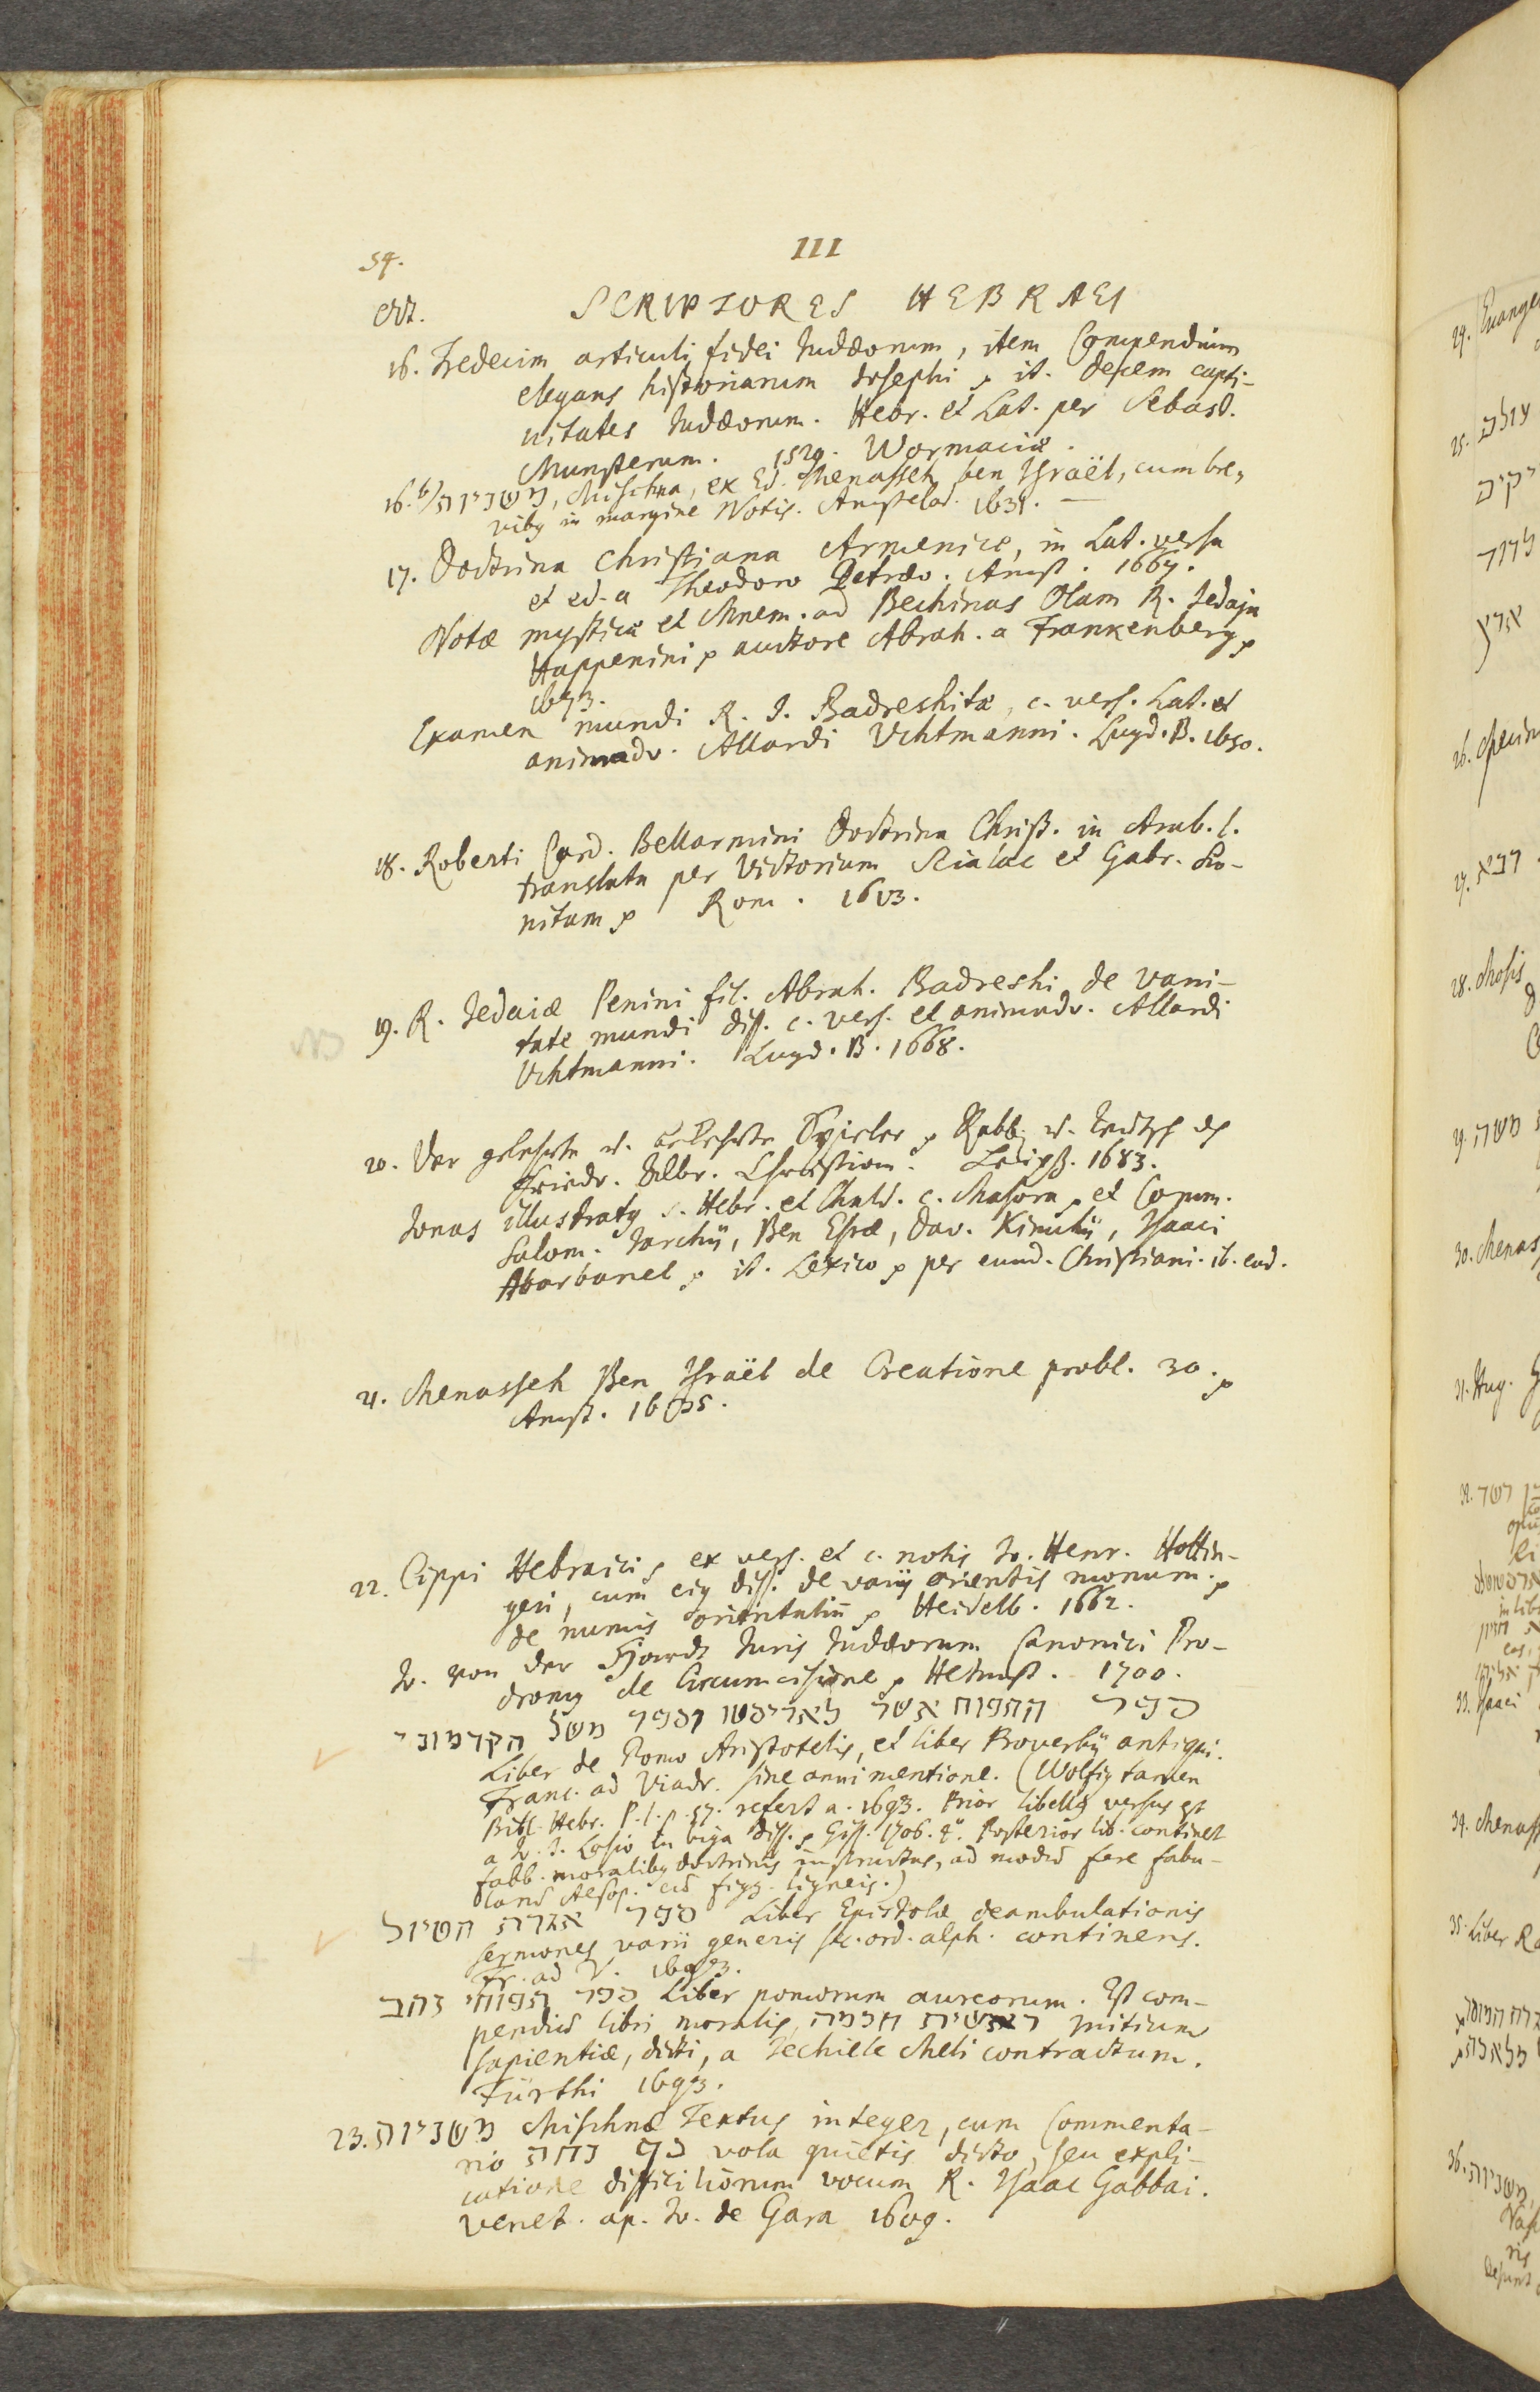 54.
III
Oct.
SCRIPTORES HEBRAEI
16. Tredecim articuli fidei Judæorum, item Compendium
elegans historiarum Josephi, it. decem capti-
vitates Judæorum. Hebr. et Lat. per Sebast.
Munsterum. 1529. Wormaciæ.
16.b/ משניות, Mischna, ex Ed. Menasseh ben Israël, cum bre-
vibus in margine Notis. Amstelod.
17. Doctrina Christiana Armenice, in Lat. versa
et ed. a Theodoro Petræo. Amst. 1667.
Notæ mysticæ et Mnem. ad Bechinas Olam R. Jedaja
Happenini, auctore Abrah. a Frankenberg,
1673.
Examen mundi R. J. Badreshitæ, c. vers. Lat. et
animadv. Allardi Uchtmanni. Lugd. B. 1650.
18. Roberti Card. Bellarmini Doctrina Christ. in Arab. l.
translata per Victorium Scialac et Gabr. Sio-
nitam, Rom. 1613.
NB
19. R. Jedaiæ Penini fil. Abrah. Badreshi de vani-
tate mundi diss. c. vers. et animadv. Allardi
Uchtmanni. Lugd. B. 1668.
20. Der gelehrte u. bekehrte Spieler, Rabb. u. Teutsch
Friedr. Albr. Christiani. Leipz. 1683.
Jonas illustratus Hebr. et Chald. c. Masora, et Comm.
Salom. Jarchii, Ben Esræ, Dav. Kimchii, Isaaci
Abarbanel, it. Lexico, per eund. Christiani. ib. eod.
21. Menasseh Ben Israël de Creatione probl. 30.
Amst. 1635.
22. Cippi Hebraici, ex vers. et c. notis Jo. Henr. Hottin-
geri, cum ejus diss. de variis orientis monum.
de numis orientalium, Heidelb. 1662.
Jo. von der Hardt Juris Judæorum Canonici Pro-
dromus de Circumcisione, Helmst. 1700.
ספר התפוח אשר לאריסטו וספר משל הקדמוני
Liber de Pomo Aristotelis, et liber Proverbii antiqui.
Franc. ad Viadr. sine anni mentione. (Wolfius tamen
Bibl. Hebr. P. I. p. 57. refert a. 1693. Prior libellus versus est
a Jo. J. Losio in biga diss. Giss. 1706. 4°. Posterior lib. continet
fabb. moralibus doctrinis instructas, ad modum fere fabu-
larum Aesop. cum figg. ligneis.)
ספר אגרת הטיול Liber Epistolæ deambulationis
sermones varii generis sec. ord. alph. continens.
Fr. ad V. 1693.
ספר תפוחי זהב Liber pomorum aureorum. Est com-
pendium libri moralis, ראשית חכמה initium
sapientiæ, dicti, a Jechiele Meli contractum.
Fürthi 1693.
23. משניות Mischnæ Textus integer, cum Commenta-
rio כף נחת vola quietis dicto, seu expli-
catione difficiliorum vocum R. Isaac Gabbai.
Venet. ap. Jo. de Gara 1609.